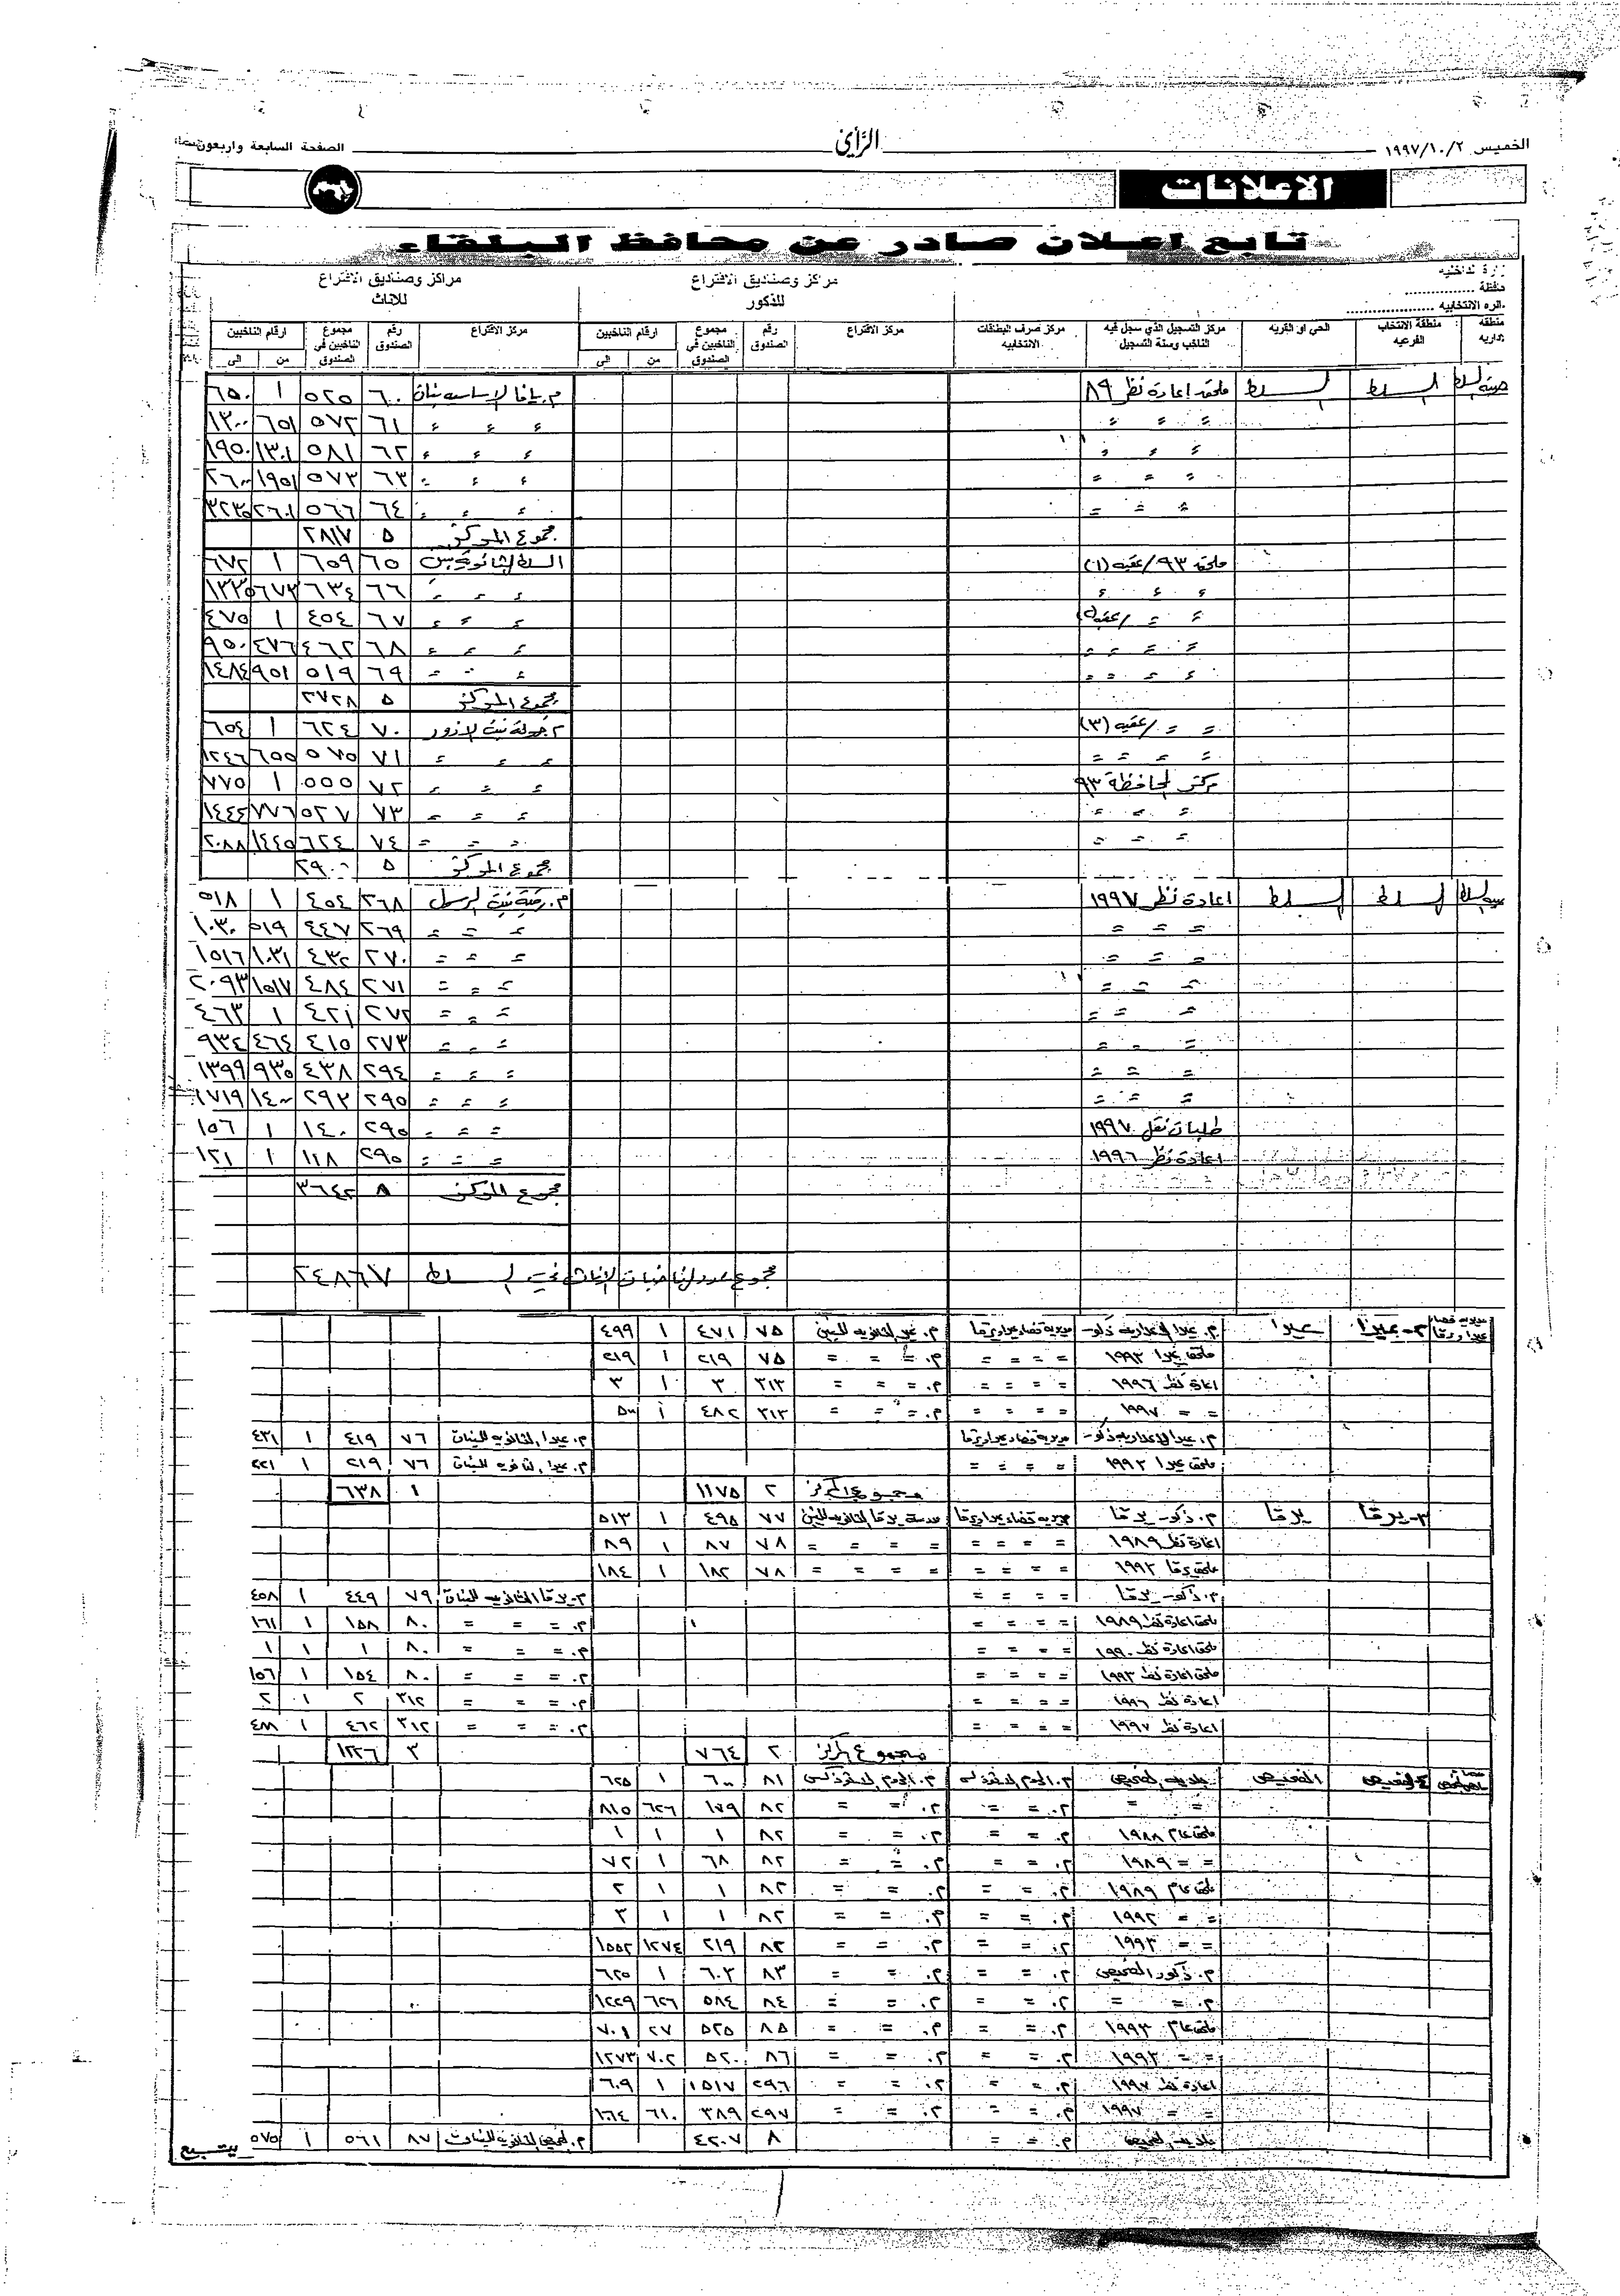 الخميس ١٩٩٧/١٠/٢ الرأي الصفحة السابعة واربعون
الاعلانات
تابع اعلان صادر عن محافظ البلقاء
مراكز وصناديق الاقتراع للذكور مراكز وصناديق الاقتراع للاناث
منطقة الانتخاب الفرعيه الحي او القريه مركز التسجيل الذي سجل فيه الناخب وسنة التسجيل مركز صرف البطاقات الانتخابيه مركز الاقتراع رقم الصندوق مجموع الناخبين في الصندوق ارقام الناخبين من الى مركز الاقتراع رقم الصندوق مجموع الناخبين في الصندوق ارقام الناخبين من الى
السلط السلط ملحق اعادة نظر ٨٩ م. يافا الاساسيه بنات ٦٠ ٥٢٥ ١ ٦٥٠
= = = = = = ٦١ ٥٧٢ ٦٥١ ١٣٠٠
= = = = = ٦٢ ٥٨١ ١٣٠١ ١٩٥٠
= = = = = = ٦٣ ٥٧٣ ١٩٥١ ٢٦٠٠
= = = = = = ٦٤ ٥٦٦ ٢٦٠١ ٣٢٣٥
مجموع المركز ٥ ٢٨١٧
ملحق ٩٣/عقبه (١) السلط الثانويه ٦٥ ٦٥٩ ١ ٦٧٢
= = = = = = ٦٦ ٦٣٤ ٦٧٣ ١٣٣٥
= = = = = ٦٧ ٤٥٤ ١ ٤٧٥
= = = = = = = ٦٨ ٤٦٢ ٤٧٦ ٩٥٠
= = = = = = ٦٩ ٥١٩ ٩٥١ ١٤٨٤
مجموع المركز ٥ ٢٧٢٨
= = /عقبه (٣) م خولة بنت الازور ٧٠ ٦٢٤ ١ ٦٥٤
= = = = = = = ٧١ ٥٧٥ ٦٥٥ ١٢٤٦
مكتب المحافظة ٩٣ = = = ٧٢ ٥٥٥ ١ ٧٧٥
= = = = = = ٧٣ ٥٢٧ ٧٧٦ ١٤٤٤
= = = = = = ٧٤ ٦٢٤ ١٤٤٥ ٢٠٨٨
مجموع المركز ٥ ٢٩٠٠
السلط السلط اعادة نظر ١٩٩٧ م. رقية بنت الرسول ٢٦٨ ٤٥٤ ١ ٥١٨
= = = = = = ٢٦٩ ٤٤٧ ٥١٩ ١٠٣٠
= = = = = = ٢٧٠ ٤٣٢ ١٠٣١ ١٥١٦
= = = = = = ٢٧١ ٤٨٤ ١٥١٧ ٢٠٩٣
= = = = = = ٢٧٢ ٤٢١ ١ ٤٦٣
= = = = = = ٢٧٣ ٤١٥ ٤٦٤ ٩٣٤
= = = = = = ٢٩٤ ٤٣٨ ٩٣٥ ١٣٩٩
= = = = = = ٢٩٥ ٢٩٣ ١٤٠٠ ١٧١٩
طلبات نقل ١٩٩٧ = = = ٢٩٥ ١٤٠ ١ ١٥٦
اعادة نظر ١٩٩٦ = = = ٢٩٥ ١١٨ ١ ١٢١
مجموع المركز ٨ ٣٦٤٢
مجموع عدد الناخبات الاناث في السلط ٢٤٨٦٧
٢-عيرا عيرا م. عيرا الاعداديه ذكور مديرية قضاء عيرا ويرقا م. عيرا الثانويه للبنين ٧٥ ٤٧١ ١ ٤٩٩
ملحق عيرا ١٩٩٣ = = = = م. = = = ٧٥ ٢١٩ ١ ٢١٩
اعادة نظر ١٩٩٦ = = = = م. = = = ٣١٣ ٣ ١ ٣
= = ١٩٩٧ = = = = م. = = = ٣١٣ ٤٨٢ ١ ٥٠٠
م. عيرا الاعداديه ذكور مديرية قضاء عيرا ويرقا م. عيرا الثانويه للبنات ٧٦ ٤١٩ ١ ٤٣١
ملحق عيرا ١٩٩٣ = = = = م. عيرا الثانويه للبنات ٧٦ ٢١٩ ١ ٢٢١
مجموع المركز ٢ ١١٧٥ ١ ٦٣٨
٣-يرقا يرقا م. ذكور يرقا مديرية قضاء عيرا ويرقا مدرسة يرقا الثانويه للبنين ٧٧ ٤٩٥ ١ ٥١٣
اعادة نظر ١٩٨٩ = = = = = = = = ٧٨ ٨٧ ١ ٨٩
ملحق يرقا ١٩٩٣ = = = = = = = = ٧٨ ١٨٢ ١ ١٨٤
م. ذكور يرقا = = = = م. يرقا الثانويه للبنات ٧٩ ٤٤٩ ١ ٤٥٨
ملحق اعادة نظر ١٩٨٩ = = = = م. = = = ٨٠ ١٥٨ ١ ١٦١
ملحق اعادة نظر ١٩٩٠ = = = = م. = = = ٨٠ ١ ١ ١
ملحق اعادة نظر ١٩٩٣ = = = = م. = = = ٨٠ ١٥٤ ١ ١٥٦
اعادة نظر ١٩٩٦ = = = = م. = = = ٣١٢ ٢ ١ ٢
اعادة نظر ١٩٩٧ = = = = م. = = = ٣١٢ ٤٦٢ ١ ٤٨٨
مجموع المركز ٢ ٧٦٤ ٣ ١٢٢٦
٤-الفحيص الفحيص بلدية الفحيص ٨١ ٦٠٠ ١ ٦٢٥
= = م. = = م. = = ٨٢ ١٧٩ ٦٢٦ ٨١٥
ملحق عام ١٩٨٨ م. = = م. = = ٨٢ ١ ١ ١
= = ١٩٨٩ م. = = م. = = ٨٢ ٦٨ ١ ٧٢
ملحق عام ١٩٨٩ م. = = م. = = ٨٢ ١ ١ ٢
= = ١٩٩٢ م. = = م. = = ٨٢ ١ ١ ٣
= = ١٩٩٣ م. = = م. = = ٨٢ ٢١٩ ١٢٧٤ ١٥٥٢
م. ذكور الفحيص م. = = م. = = ٨٣ ٦٠٣ ١ ٦٢٥
م. = = م. = = م. = = ٨٤ ٥٨٤ ٦٢٦ ١٢٢٩
ملحق عام ١٩٩٣ م. = = م. = = ٨٥ ٥٢٥ ٢٧ ٧٠١
= = ١٩٩٣ م. = = م. = = ٨٦ ٥٢٠ ٧٠٢ ١٢٧٣
اعادة نظر ١٩٩٧ م. = = م. = = ٢٩٦ ٥١٧ ١ ٦٠٩
= = ١٩٩٧ م. = = م. = = ٢٩٧ ٣٨٩ ٦١٠ ١٠٦٤
بلدية الفحيص م. = = ٨ ٤٢٠٧ م. الفحيص الثانويه للبنات ٨٧ ٥٦١ ١ ٥٧٥
يتبع